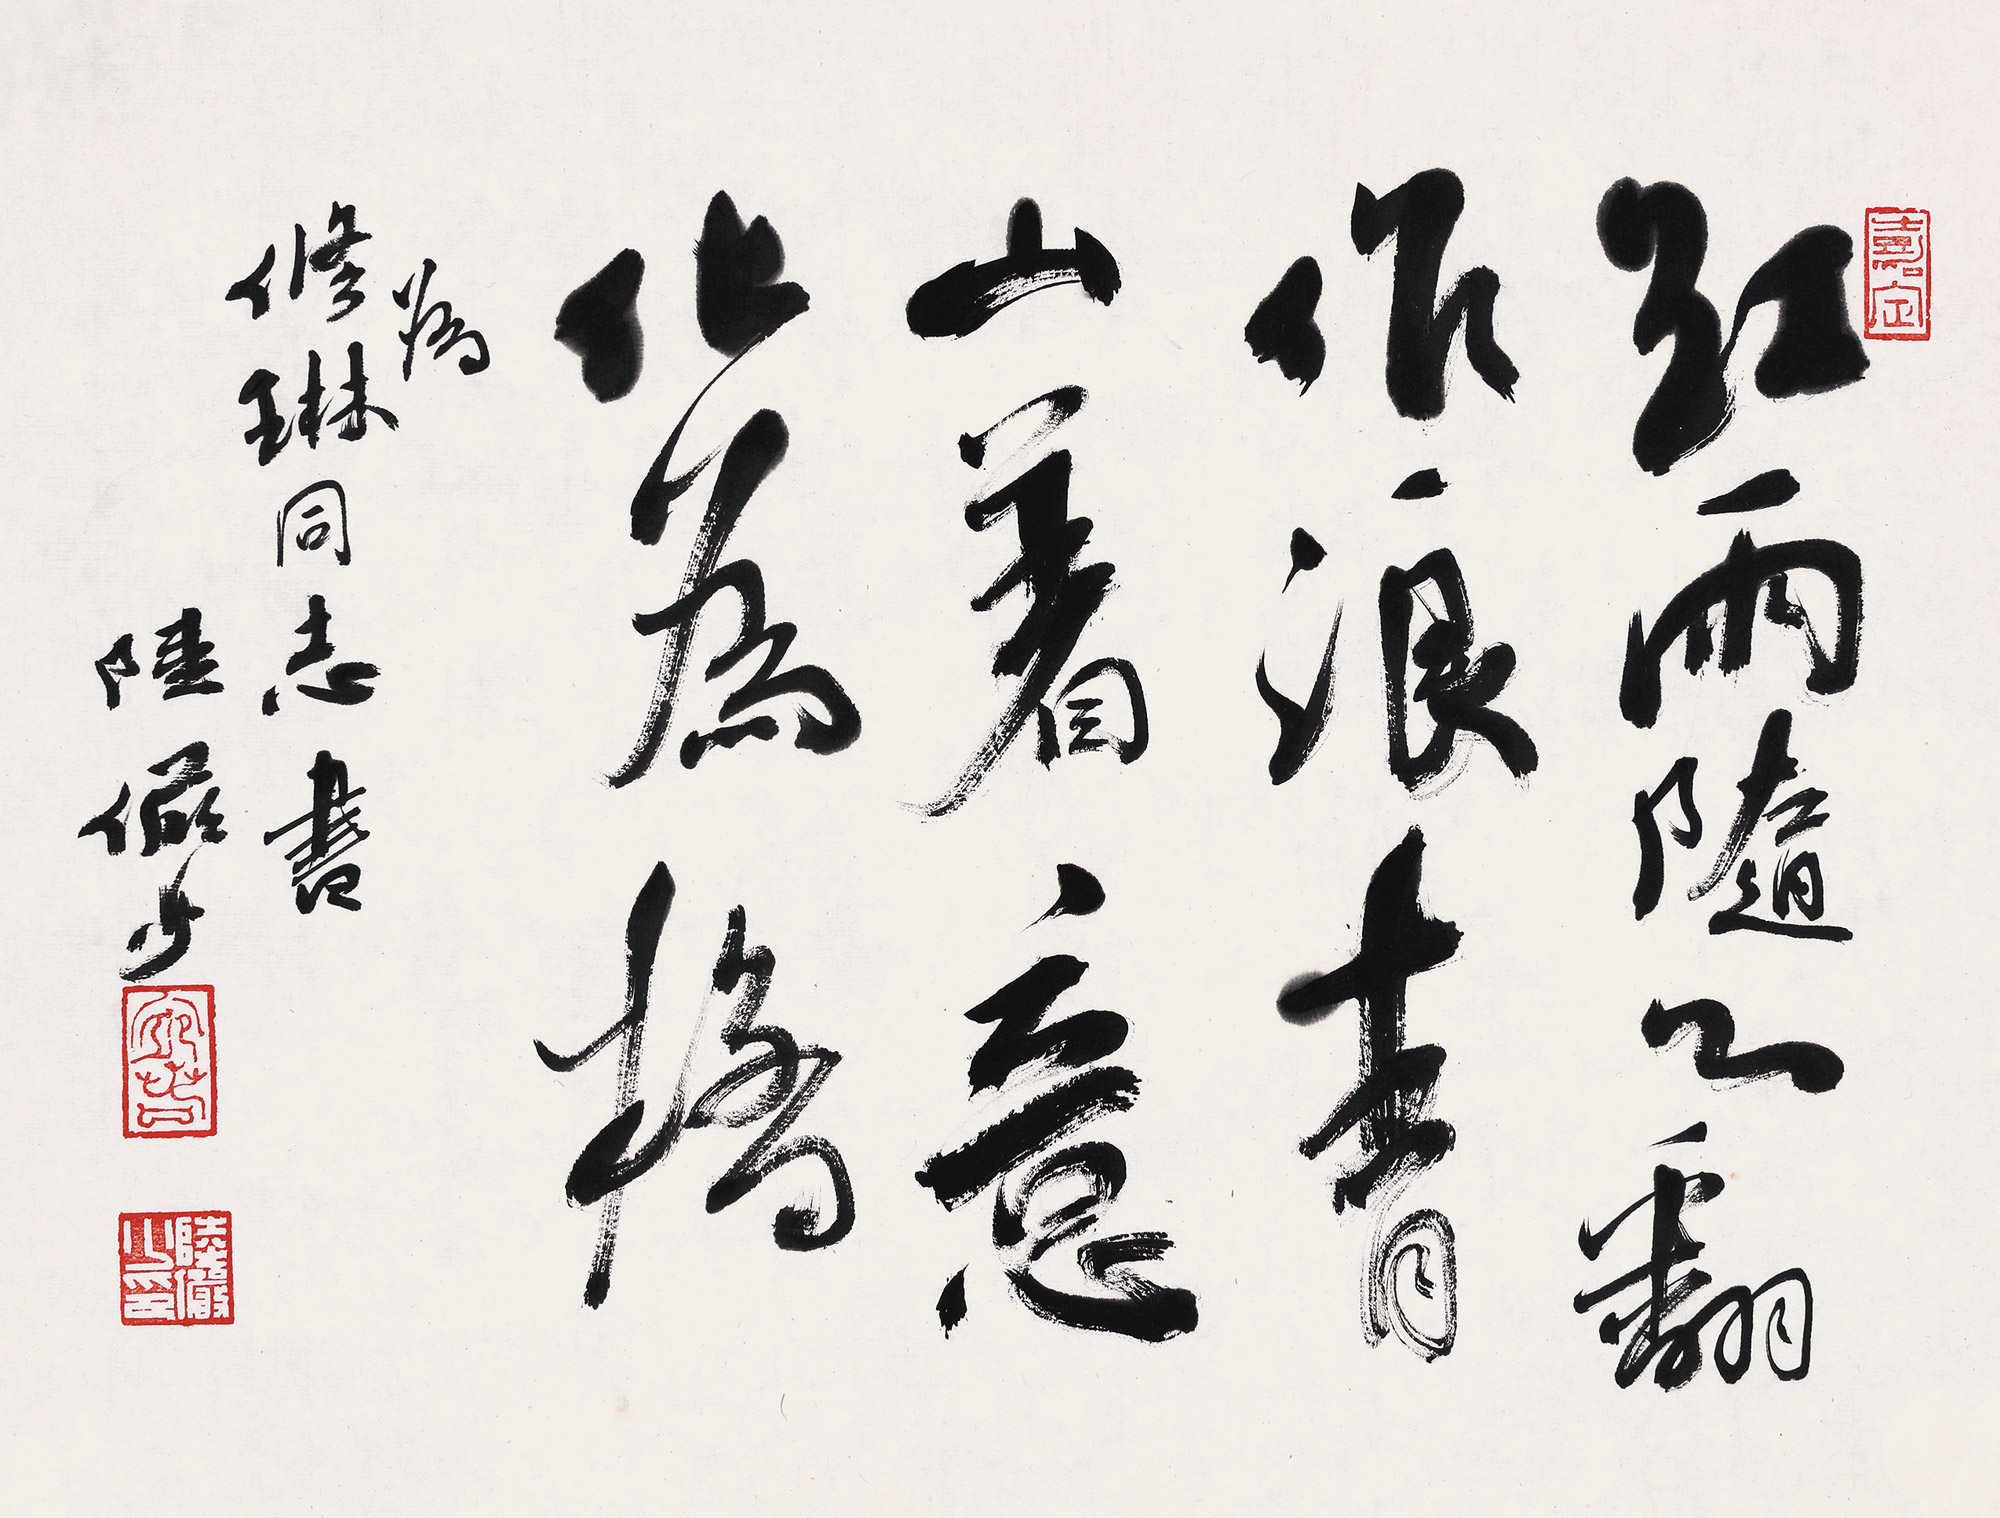 嘉定
紅雨隨心翻
作浪青
山着意
化為橋
為
修琳同志書
陸儼少
宛若